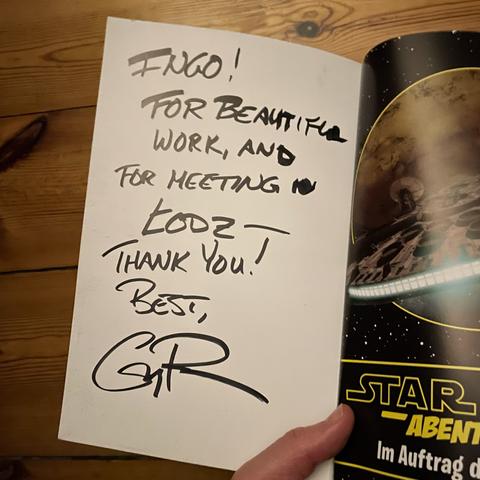 INGO!
FOR BEAUTIFUL
WORK, AND
FOR MEETING IN
ŁODZ —
THANK YOU!
BEST,
STAR
ABENT
Im Auftrag d